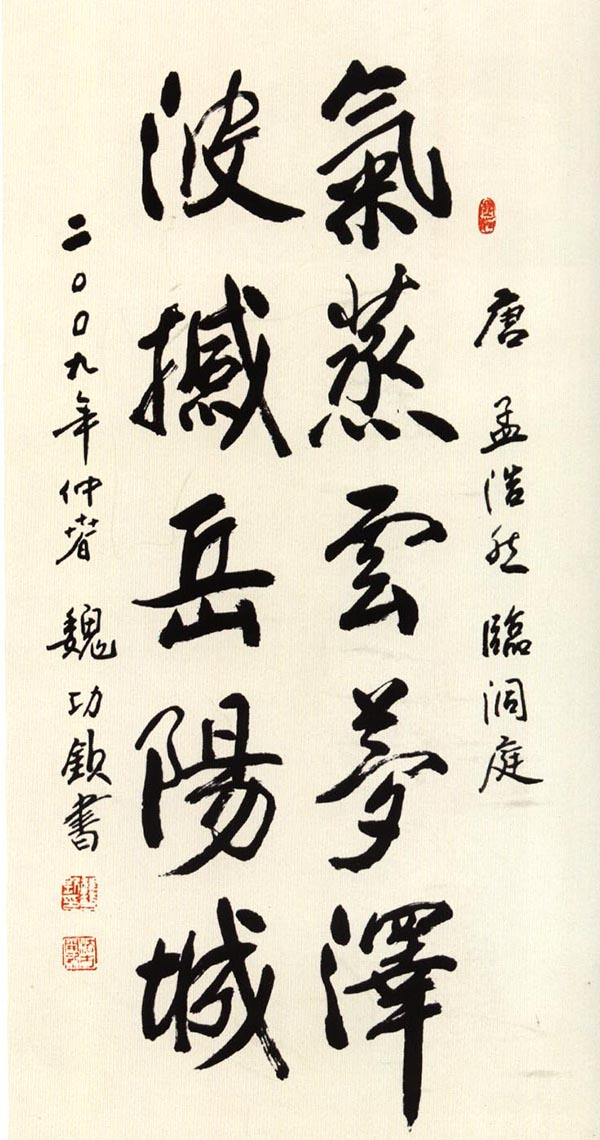 唐 孟浩然 臨洞庭
氣蒸雲夢澤
波撼岳陽城
二〇〇九年仲春 魏功欽書